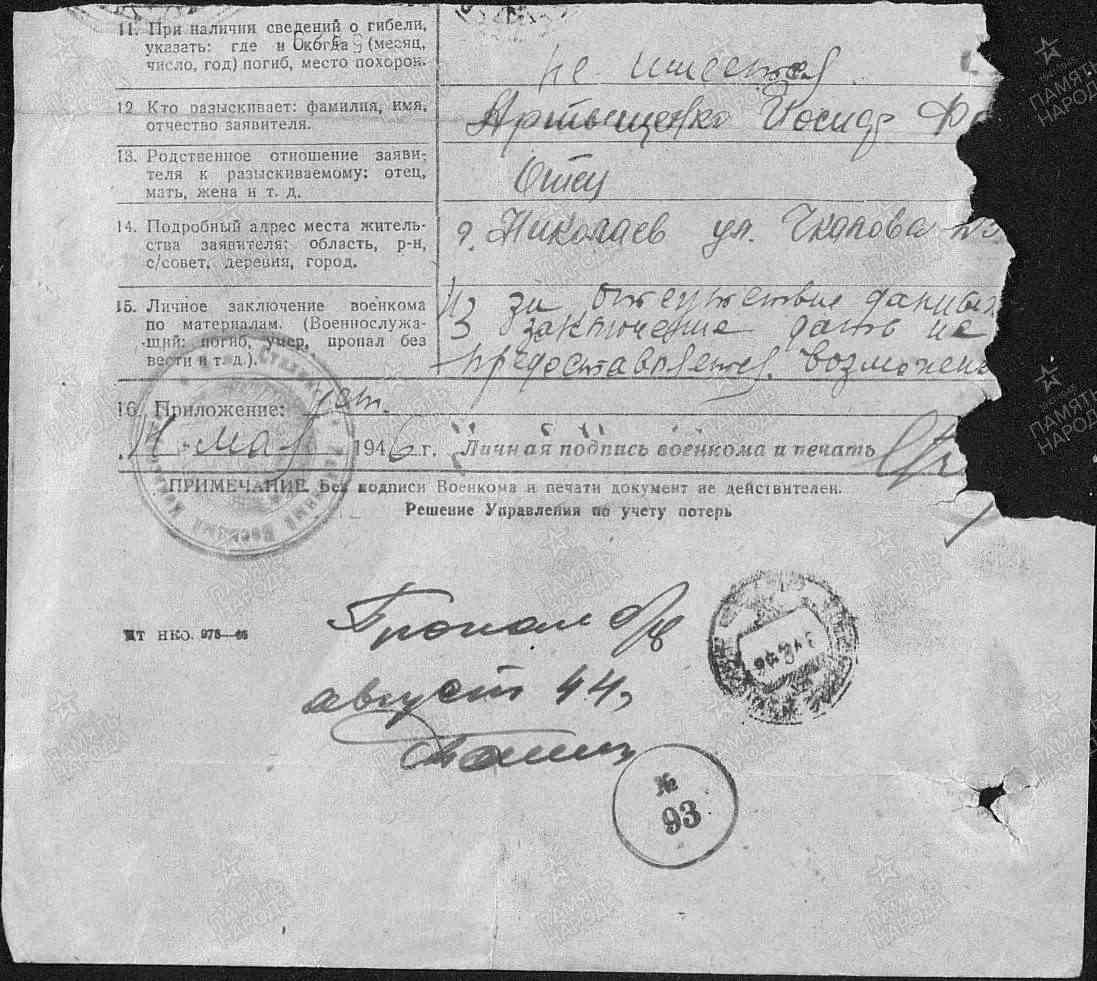 11. При наличии сведений о гибели,
указать: где и когда (месяц,
число, год) погиб, место похорон.
не имеется
12. Кто разыскивает: фамилия, имя,
отчество заявителя.
Артыщенко Иосиф
13. Родственное отношение заяви-
теля к разыскиваемому: отец,
мать, жена и т. д.
Отец
14. Подробный адрес места житель-
ства заявителя: область, р-н,
с/совет, деревня, город.
г. Николаев ул. Чкалова
15. Личное заключение военкома
по материалам. (Военнослужа-
щий: погиб, умер, пропал без
вести и т. д.).
Из за отсутствие данных
заключение дать не
предоставляется возможен
16. Приложение: нет.
мая 1946 г. Личная подпись военкома и печать
ПРИМЕЧАНИЕ. Без подписи Военкома и печати документ не действителен.
Решение Управления по учету потерь
Пропал б/в
август 44,
НКО. 978—46
№
93
ПАМЯТЬ
НАРОДА